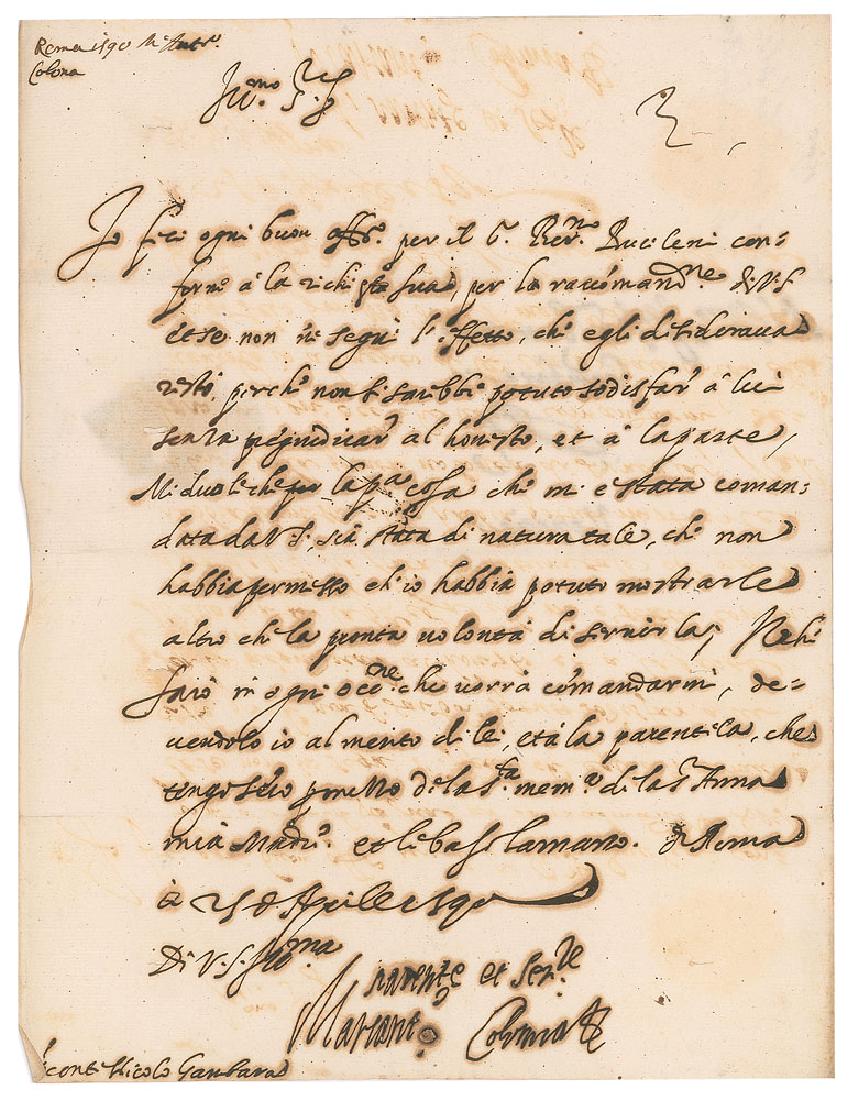 Roma 1590 M Anto.
Colona
Illmo. Sor
Io feci ogni buon offo. per il Revmo. con=
forme à la richiesta sua, per la raccomandne. di V.S
et se non ne segui l'effetto, che egli desiderava
resto, perche non si sarebbe potuto sodisfar à lui
senza pregiudicar al honesto, et à la parte,
Mi duole che la pa. cosa che mi e stata coman=
data da V.S., sia stata di natura tale, che non
habbia permesso ch'io habbia potuto mostrarle
altro che la pronta volontà di servirla;
farò in ogni occne. che vorrà comandarmi, de=
vendolo io al merito di lei, et à la parentela, che
tengo seco per mezzo de la sta. mema. di la Sra Anna
mia Madre. et le bascio la mano. di Roma
à 25 d'Aprile 1590
Di V.S. Illma
Parente et Serre
Marcanto. Colonna
Conte Nicolo Gambara